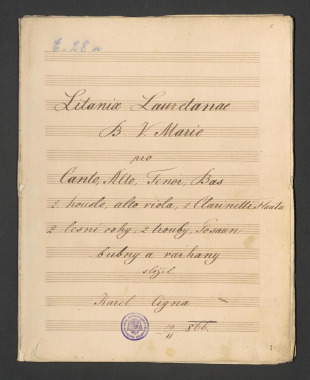 E. 28 a
Litaniæ Lauretanae
B. V. Marie
pro
Canto, Alto, Tenor, Bas
2 housle, alto viola, 2 Clarinetti, Flauta
2 lesni rohy, 2 trouby, Posaun
bubny a varhany
složil
Karel Cigna
10/11 866.